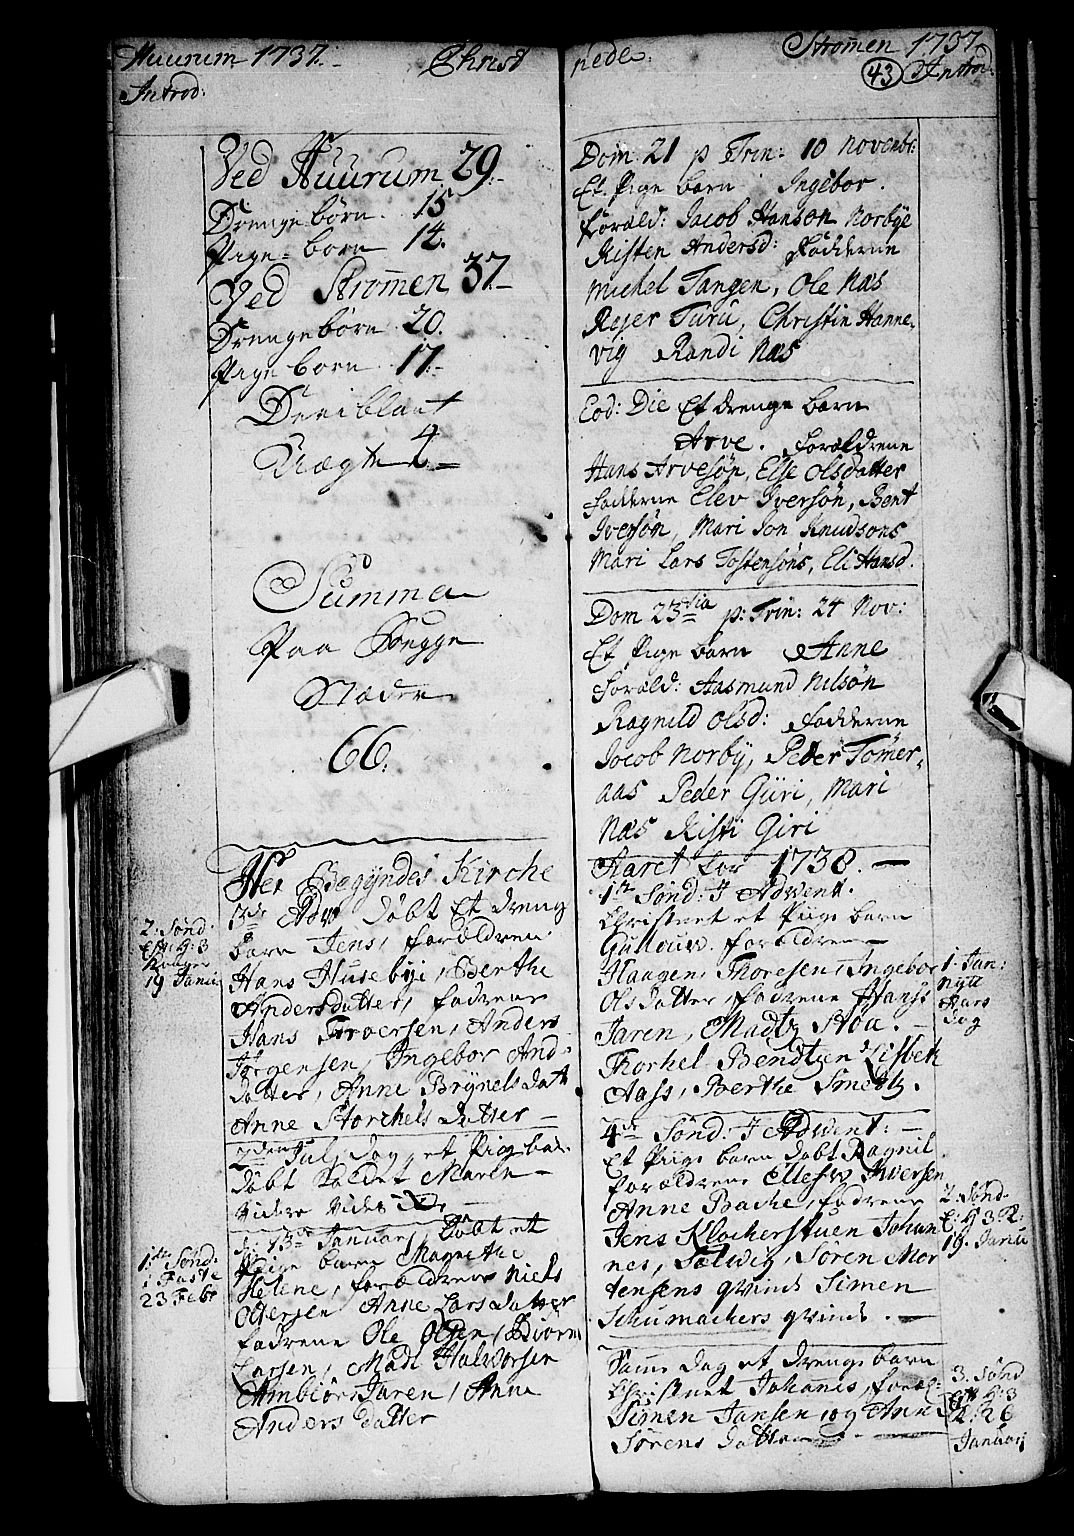 Huurum 1737.
Christ
Introd:
Ved Huurum 29.
Drenge børn. 15
Pige-børn 14.
Ved Strømmen 37.
Drengebørn. 20.
Pige børn. 17.
Deriblant
Uægte 4.
Summa
Paa Begge
Stæder
66.
Her Begyndes Kirche
3de Adv Døbt Et dreng
barn Jens, foræ̈ldrene
Hans Husebye, Berthe
Andersdatter, fadrene
Hans Iversen, Anders
Jørgensen, Ingebor And:
datter, Anne Brynels datt
Anne Storchels datter
2den Juledag et Pige ba
døbt kaldet Maren
videre vides
d: 13de Januari, døbt et
Pige barn Magrethe
Helene, forældrene Niels
Ottersen Anne Larsdatter
fadrene Ole Olsen, Biørn
Larsen, Madz Halvorsen
Ambiør Jaren, Anne
Anders datter
2. Sønd.
Eft: H: 3
Konger
19 Janu
1ste Sønd.
i Faste
23 Febr
nede.
Strømen 1737.
43 Introd.
Dom 21 p Trin: 10 Novembr:
Et Pige barn Ingebor.
Foræld: Jacob Hanson Norbye
Kisten Andersd: Fadderne
Michel Tangen, Ole Næs
Rejer Turu, Christin Hanne-
vig Randi Næs
Eod: Die Et drenge barn
Arve. forældrene
Hans Arvesøn, Else Olsdatter
Fadderne Elev Iversøn, Bent
Iversøn, Mari Jon Knudsøns
Mari Lars Tostensøns, Eli Hansd.
Dom 23tia p: Trin: 24 Nov:
Et Pige barn Anne
Foræld: Aasmund Nilsøn
Ragnild Olsd: Fadderne
Jacob Norby, Peder Tømer-
aas Peder Guri, Mari
Næs Kisti Giri
Aaret for 1738.
1te Sønd: I Advent.
Christnet et Piige barn
Gulour. forældrene
Haagen Thoresen, Ingebor
Olsdatter, fadrene Hans
Jaren, Madtz Stoa.
Thorkel Bendtzen Lisbeth
Aass, Berthe Smedtz.
4de Sønd: I Advent:
Et Piige barn døbt Ragnil
forældrene Ellefw Iversen
Anne Bache, fadrene
Jens Klocherstuen Johan
nes, Solwig, Søren Mor
tensens qvinde Simen
Schumachers qvinde.
Samme dag et drenge barn
Christnet Johanis, foræl:
Simen Jansen og Anne
Sørens datter
1. Jan:
nytt
Aars
dag
2. Sønd.
E: H 3 K:
19. Janu
3. Sønd
Eft H: 3
K: 26
Januarj